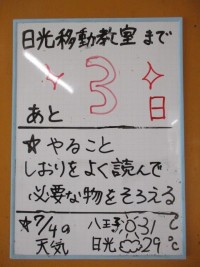 日光移動教室まで
あと 3 日
☆やること
しおりをよく読んで
必要な物をそろえる
☆7/4の天気
八王子 31℃
日光 29℃